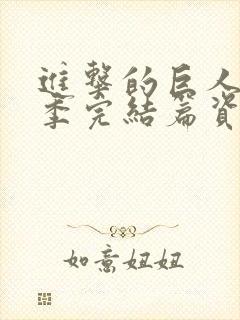 進擊的巨人
季完結篇資
如意妞妞